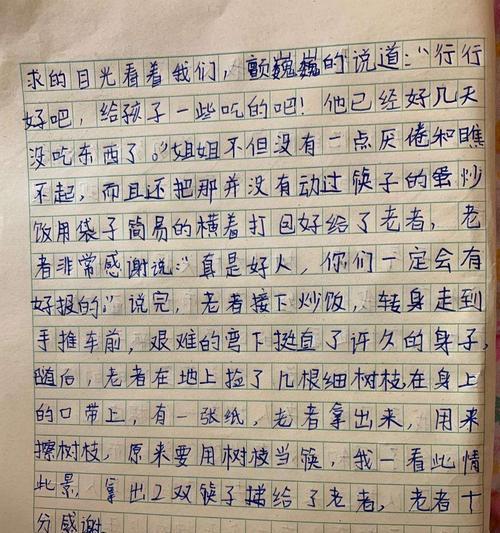 求的目光看着我们，颤巍巍的说道："行行
好吧，给孩子一些吃的吧！他已经好几天
没吃东西了。"姐姐不但没有一点厌倦和瞧
不起，而且还把那并没有动过筷子的蛋炒
饭用袋子简易的横着打包好给了老者，老
者非常感谢说："真是好人，你们一定会有
好报的。"说完，老者接下炒饭，转身走到
手推车前，艰难的弯下挺直了许久的身子，
随后，老者在地上捡了几根细树枝，在身上
的口带上，有一张纸，老者拿出来，用来
擦树枝，原来要用树枝当筷，我一看此情
此景，拿出2双筷子递给了老者，老者十
分感谢.